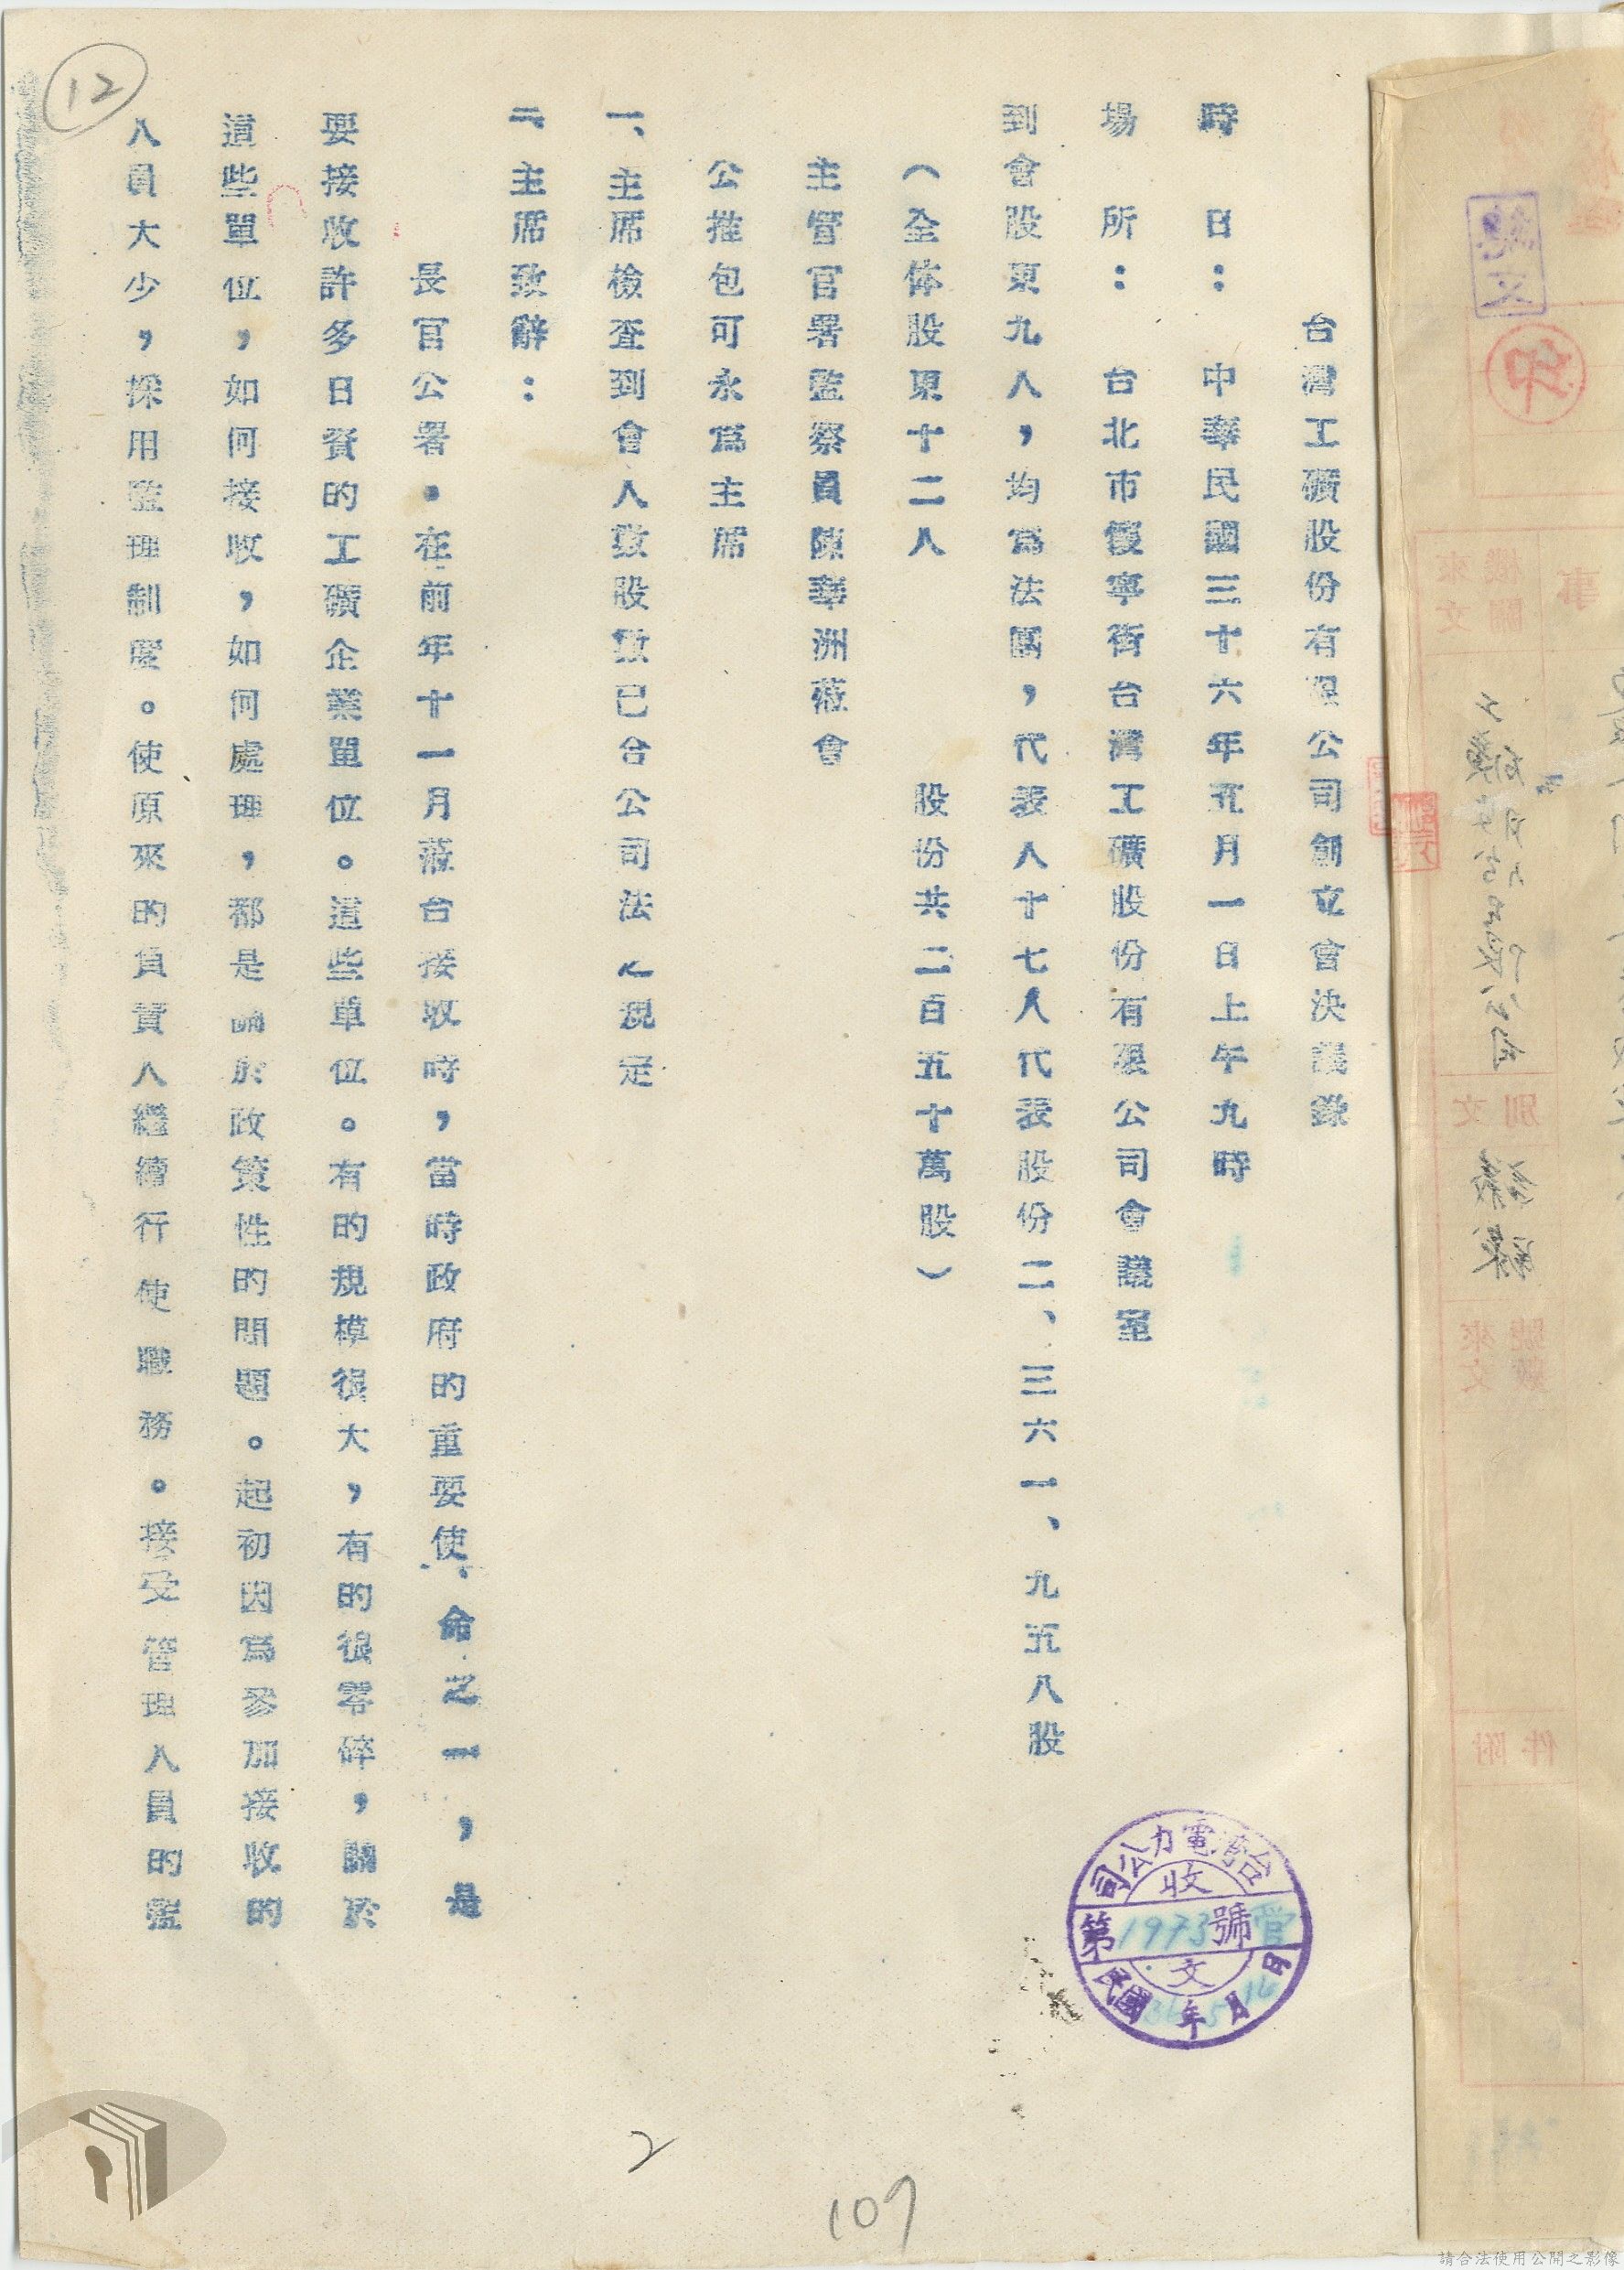 台灣工礦股份有限公司創立會決議錄
時　日：　中華民國三十六年五月一日上午九時
場　所：　台北市懷寧街台灣工礦股份有限公司會議室
到會股東九人，均為法團，代表人十七人代表股份二、三六一、九五八股
（全体股東十二人　　　　股份共二百五十萬股）
主管官署監察員陳華洲蒞會
公推包可永為主席
一、主席檢查到會人數股數已合公司法之規定
二、主席致辭：
長官公署。在前年十一月蒞台接收時，當時政府的重要使命之一，是
要接收許多日資的工礦企業單位。這些單位。有的規模很大，有的很零碎，關於
這些單位，如何接收，如何處理，都是關於政策性的問題。起初因為參加接收的
人員大少，採用監理制度。使原來的負責人繼續行使職務。接受管理人員的監
12
台灣電力公司
收
第1973號
文
民國36年5月14日
2
107
請合法使用公開之影像